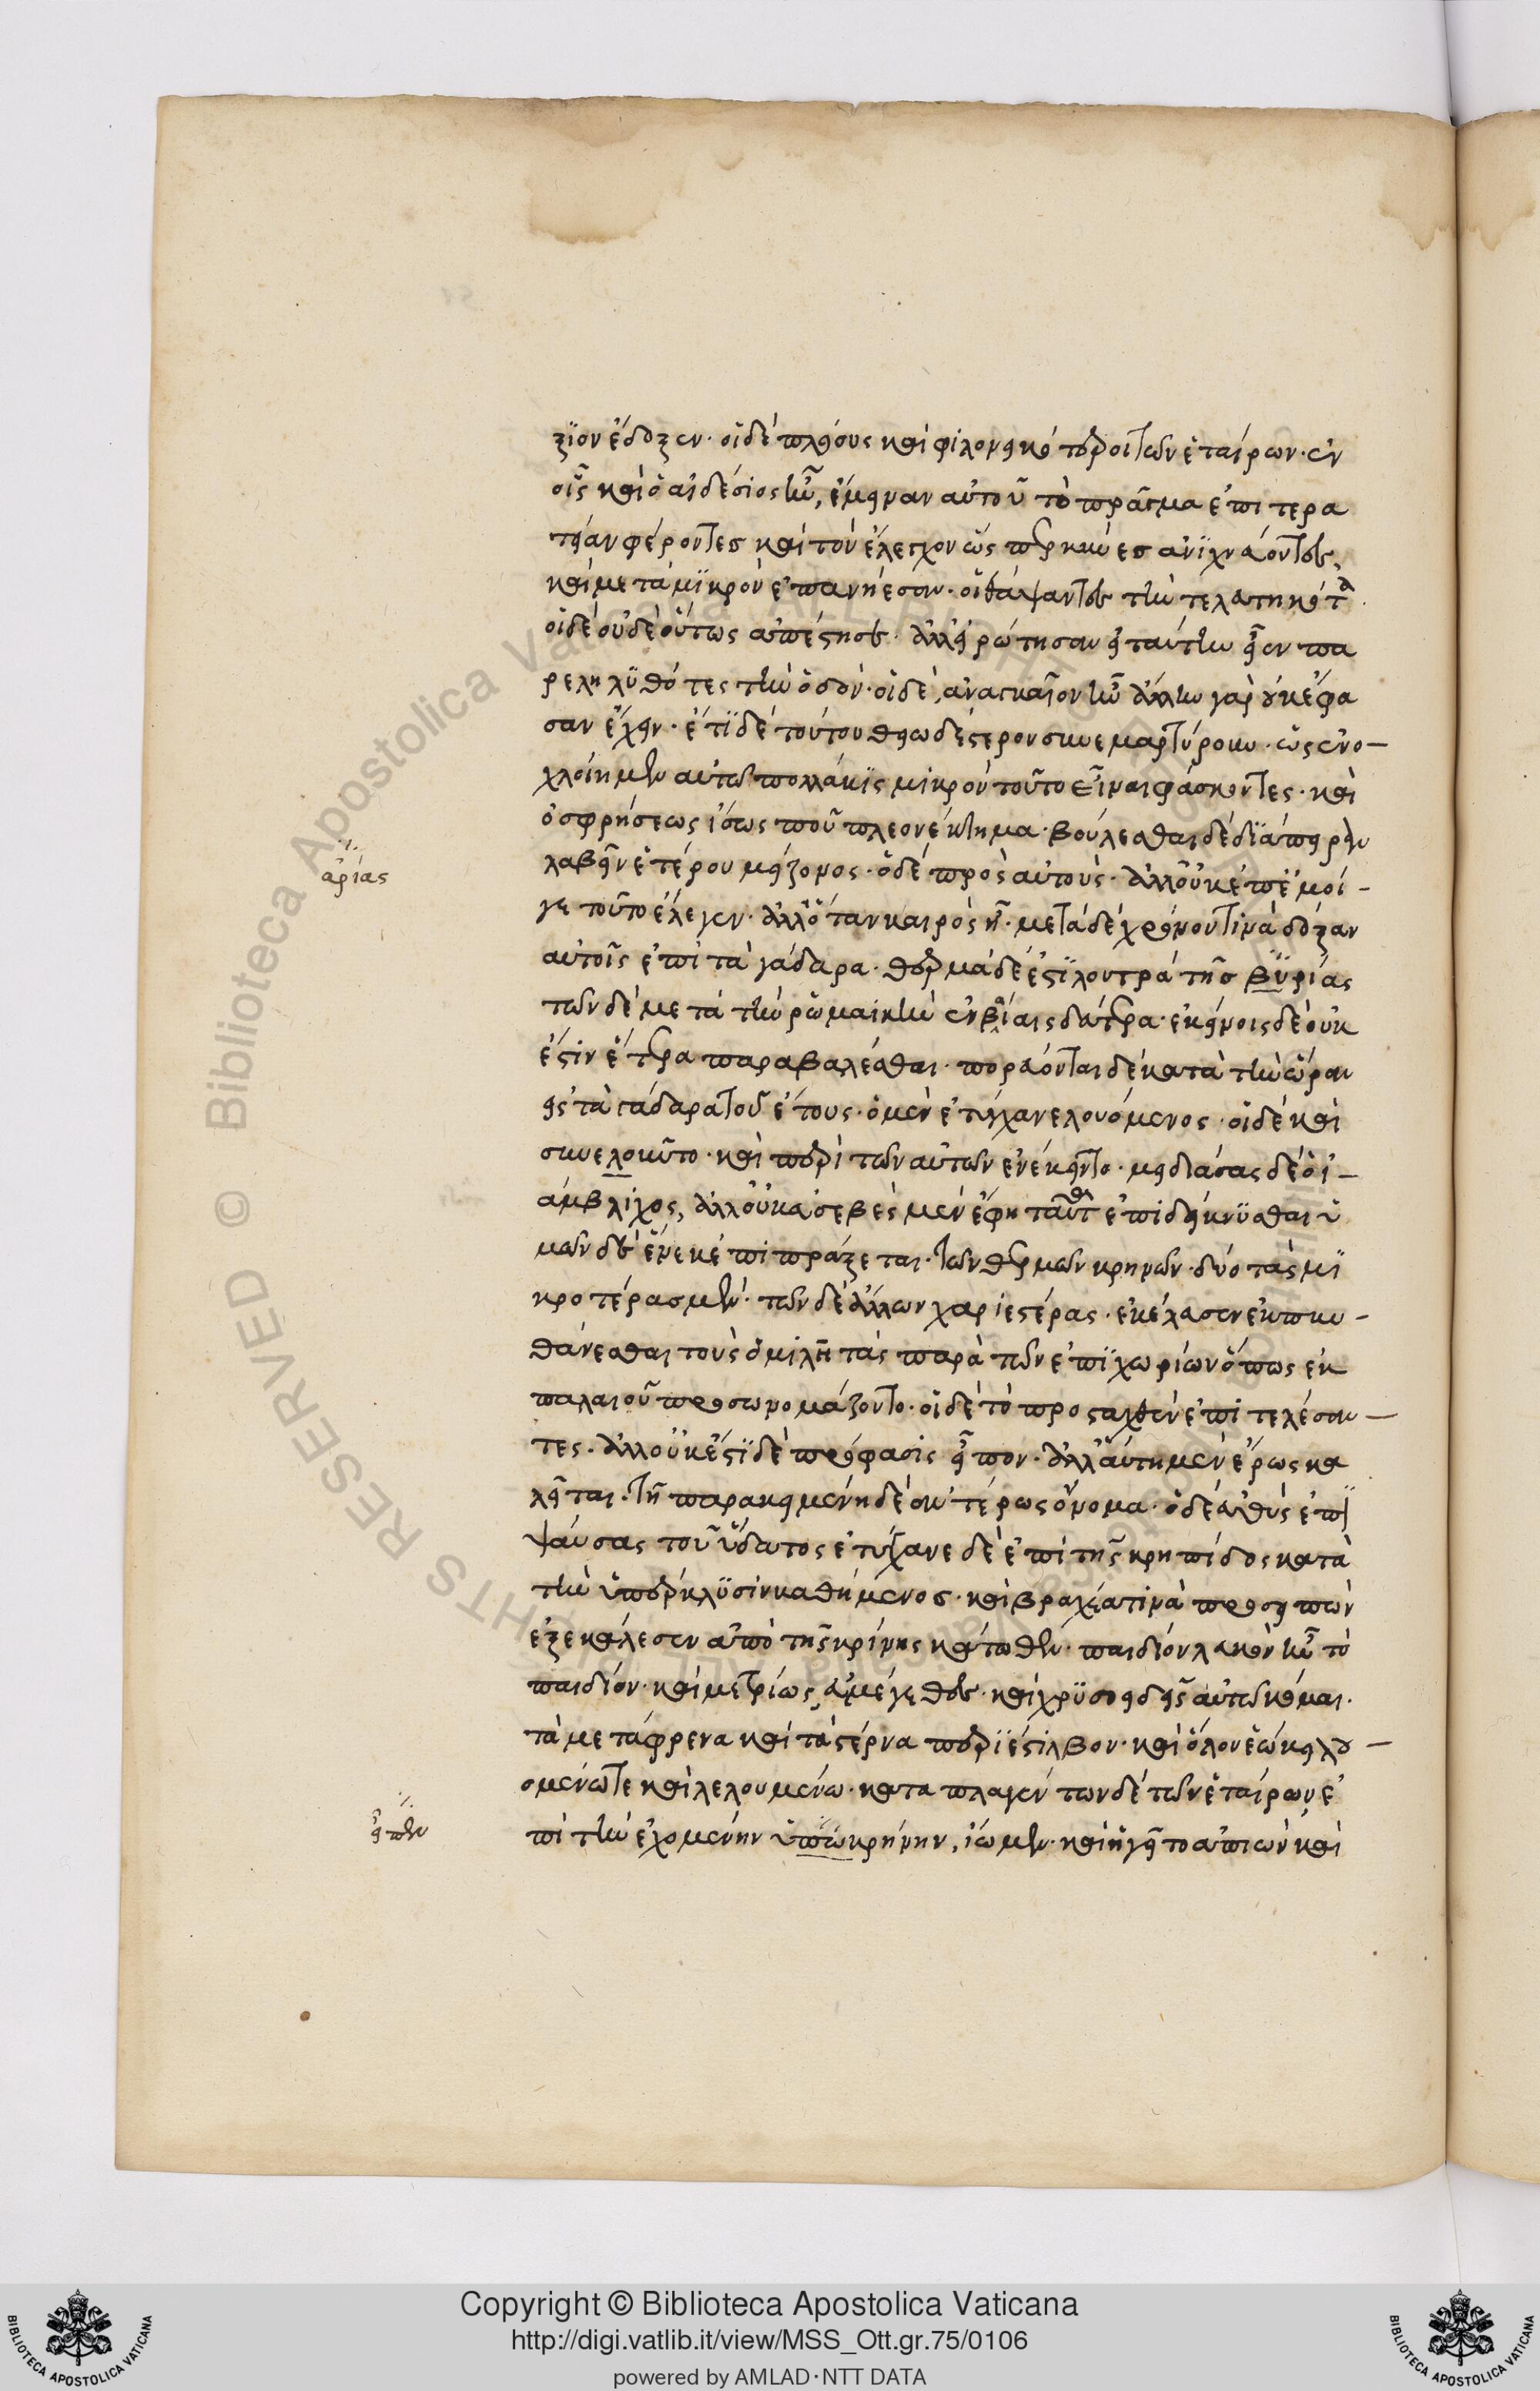 ξϊον ἔδοξεν· οἱ δὲ πλείους καὶ φιλονεικότεροι τῶν ἑταίρων· ἐν
οἷς καὶ ὁ αἰδέσιος ἦν, ἔμειναν αὐτοῦ τὸ πρᾶγμα ἐπὶ τερα
τείαν φέροντες καὶ τὸν ἔλεγχον ὡς περ κύνες ἀνϊχνεύοντες,
καὶ μετὰ μϊκρὸν ἐπανήεσαν· οἱ θάψαντες τὴν τελευτηκότα.
οἱ δὲ οὐδὲ οὕτως ἀπέστησαν· ἀλλ' ἠρώτησαν εἰ ταύτην εἶεν πα
ρεληλϋθότες τὴν ὁδόν· οἱ δὲ, ἀναγκαῖον ἦν ἄλλην γὰρ οὐκ ἔφα
σαν ἔχειν· ἔτϊ δὲ τούτου θειωδέστερον συνεμαρτύρουν· ὡς ἐνο–
χλοίημεν αὐτῷ πολλάκϊς μικρὸν τοῦτο εἶναι φάσκοντες· καὶ
ὀσφρήσεως ἴσως που πλεονέκτημα· βούλεσθαι δὲ δϊάπειραν
λαβεῖν ἑτέρου μείζονος· ὁ δὲ πρὸς αὐτοὺς· ἀλλ' οὐκ ἐπ' ἐμοί–
γε τοῦτο ἔλεγεν· ἀλλ' ὅταν καιρὸς ᾖ· μετὰ δὲ χρόνον τινὰ δόξαν
αὐτοῖς ἐπὶ τὰ γάδαρα· θερμὰ δέ ἐστϊ λουτρὰ τῆς βϋρίας
τῶν δὲ μετὰ τὴν ῥωμαικὴν ἐν βίαις δεύτερα· ἐκείνοις δὲ οὐκ
ἔστιν ἕτερα παραβαλέσθαι· πορεύονται δὲ κατὰ τὴν ὥραν
εἰς τὰ γάδαρα τοῦ ἔτους· ὁ μὲν ἐτύγχανε λουόμενος· οἱ δὲ καὶ
συνελουντο· καὶ περὶ τῶν αὐτῶν ἐνέκειντο· μειδιάσας δὲ ὁ ἰ–
άμβλιχος, ἀλλ' οὐκ ἀσεβὲς μὲν ἔφη ταῦτα ἐπιδείκνϋσθαι ὑ
μῶν δὲ ἕνεκ' ἐπιπράξεται· τῶν θερμῶν κρηνῶν· δύο τὰς μϊ
κροτέρας μὲν· τῶν δὲ ἄλλων χαριεστέρας· ἐκέλευσεν ἐκπυν–
θάνεσθαι τοὺς ὁμιλητὰς παρὰ τῶν ἐπϊχωρίων ὅπως ἐκ
παλαιοῦ προσωνομάζοντο· οἱ δὲ τὸ προσταχθὲν ἐπιτελέσαν–
τες· ἀλλ' οὐκ ἔστϊ δὲ πρόφασις εἶπον· ἀλλ' αὕτη μὲν ἔρως κα
λεῖται· τῇ παρακειμένῃ δὲ ἀντέρως ὄνομα· ὁ δὲ εὐθὺς ἐπϊ
ψαύσας τοῦ ὕδατος ἐτύγχανε δὲ ἐπὶ τῆς κρηπίδος κατὰ
τὴν ὑπέρκλϋσιν καθήμενος· καὶ βραχέα τινὰ προσειπὼν
ἐξεκάλεσεν ἀπὸ τῆς κρίνης κάτωθεν· παιδίον λευκὸν ἦν τὸ
παιδίον· καὶ μετρίως εὐμέγεθες· καὶ χρϋσοειδεῖς αὐτῷ κόμαι·
τὰ μετάφρενα καὶ τὰ στέρνα περϊέστιλβον· καὶ ὅλον ἐῴκει λο–
ομένῳ τε καὶ λελουμένῳ· καταπλαγέντων δὲ τῶν ἑταίρων, ἐ
πὶ τὴν ἐχομένην ὑπίω κρήνην, ἴωμεν· καὶ ἡγεῖτο ἀπιὼν καὶ
αρίας
εἶπεν
Copyright © Biblioteca Apostolica Vaticana
http://digi.vatlib.it/view/MSS_Ott.gr.75/0106
powered by AMLAD·NTT DATA